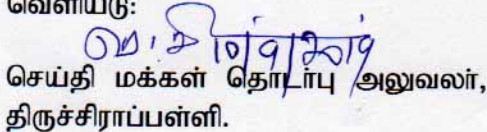 வெளியீடு:
செய்தி மக்கள் தொடர்பு அலுவலர்,
திருச்சிராப்பள்ளி.